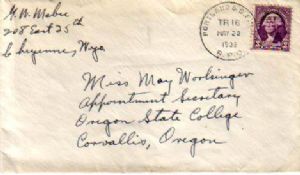 G. W. Mabee
208 East 25th
Cheyenne, Wyo
PORTLAND &
TR 16
MAY 22
R.P.O.
Miss May Workinger
Appointment Secretary
Oregon State College
Corvallis, Oregon